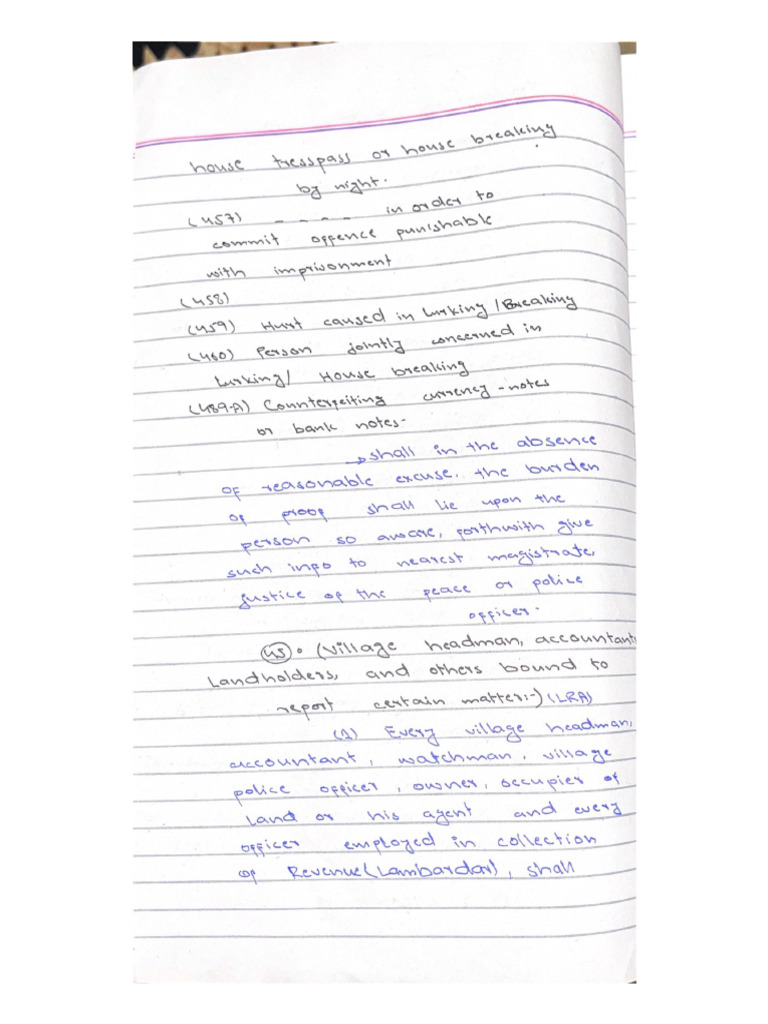 house tresspass or house breaking
by night.
(457) - - - - in order to
commit offence punishable
with imprisonment
(458)
(459) Hurt caused in lurking / Breaking
(460) Person jointly concerned in
lurking/ House breaking
(489-A) Counterfeiting currency-notes
or bank notes-
→ shall in the absence
of reasonable excuse. the burden
of proof shall lie upon the
person so aware, forthwith give
such info to nearest magistrate,
justice of the peace or police
officer.
(45). (Village headman, accountant,
Landholders, and others bound to
report certain matter:-) (LRA)
(1) Every village headman,
accountant, watchman, village
police officer, owner, occupier of
land or his agent and every
officer employed in collection
of Revenue (Lambardar), shall